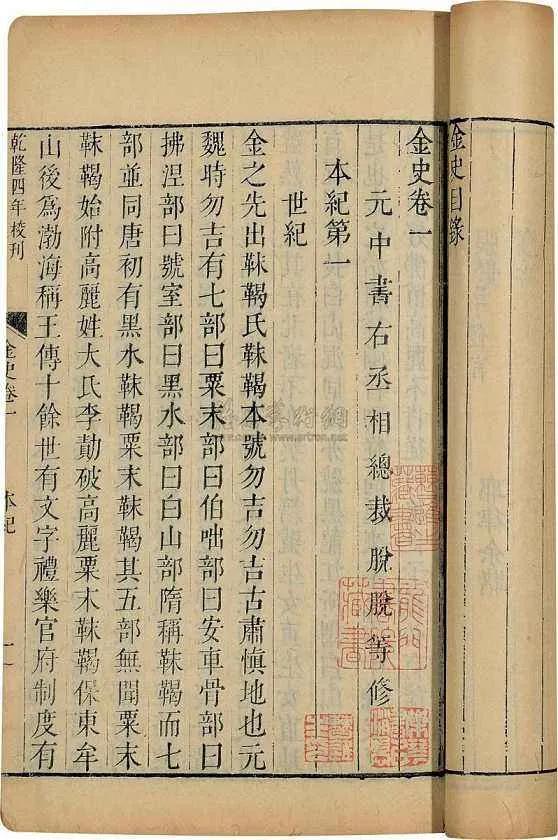 金史目錄
金史卷一
元中書右丞相總裁脫脫等修
本紀第一
世紀
金之先出靺鞨氏靺鞨本號勿吉勿吉古肅慎地也元
魏時勿吉有七部曰粟末部曰伯咄部曰安車骨部曰
拂涅部曰號室部曰黑水部曰白山部隋稱靺鞨而七
部並同唐初有黑水靺鞨粟末靺鞨其五部無聞粟末
靺鞨始附高麗姓大氏李勣破高麗粟末靺鞨保東牟
山後為渤海稱王傳十餘世有文字禮樂官府制度有
乾隆四年校刊
金史卷一
本紀
一